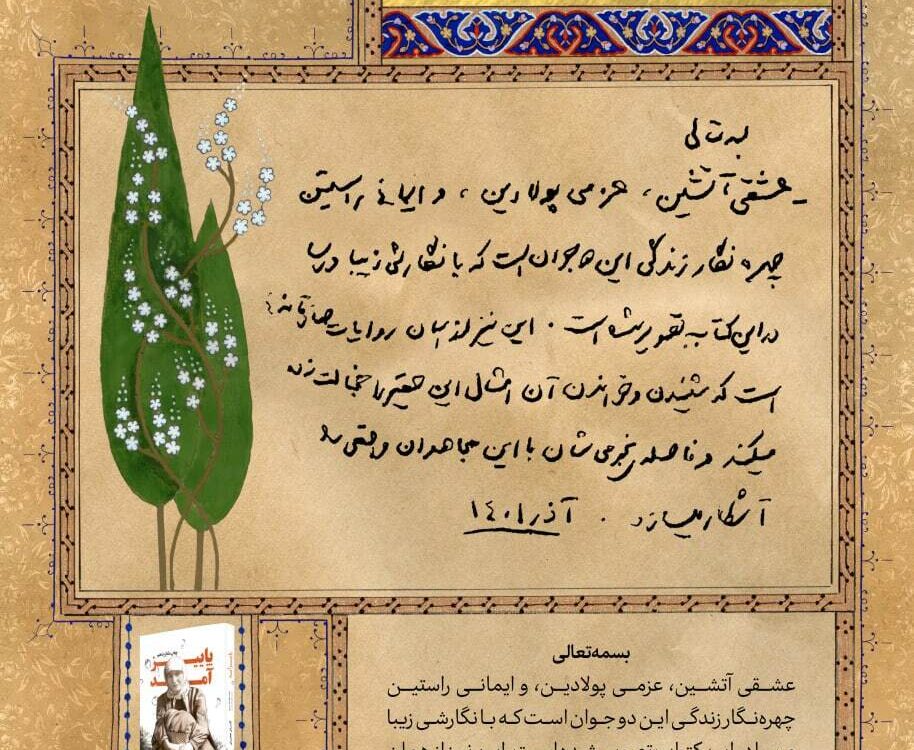 بسمه تعالی
ـ عشقی آتشین، عزمی پولادین، و ایمانی راستین
چهره نگار زندگی این دو جوان است که با نگارشی زیبا و رسا
در این کتاب تصویر شده است. این نیز از همان روایات صادقانه‌ئی
است که شنیدن و خواندن آن امثال این حقیر را خجالت زده
میکند و فاصله‌ی نجومی‌شان با این مجاهدان واقعی را
آشکار میسازد. آذر ۱۴۰۱
پاییز
آمد
بسمه‌تعالی
عشقی آتشین، عزمی پولادین، و ایمانی راستین
چهره‌نگار زندگی این دو جوان است که با نگارشی زیبا